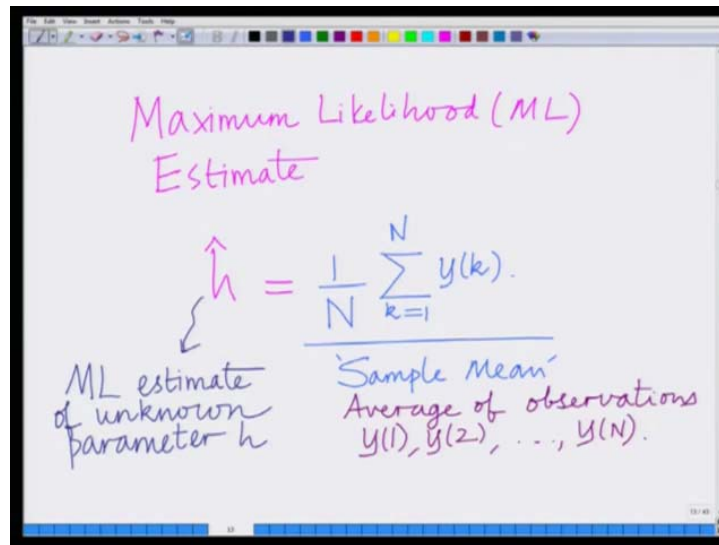 File Edit View Insert Actions Tools Help
Maximum Likelihood (ML)
Estimate
ĥ = 1/N ∑_{k=1}^{N} y(k).
ML estimate
of unknown
parameter h
'Sample Mean'
Average of observations
y(1), y(2), ..., y(N).
13